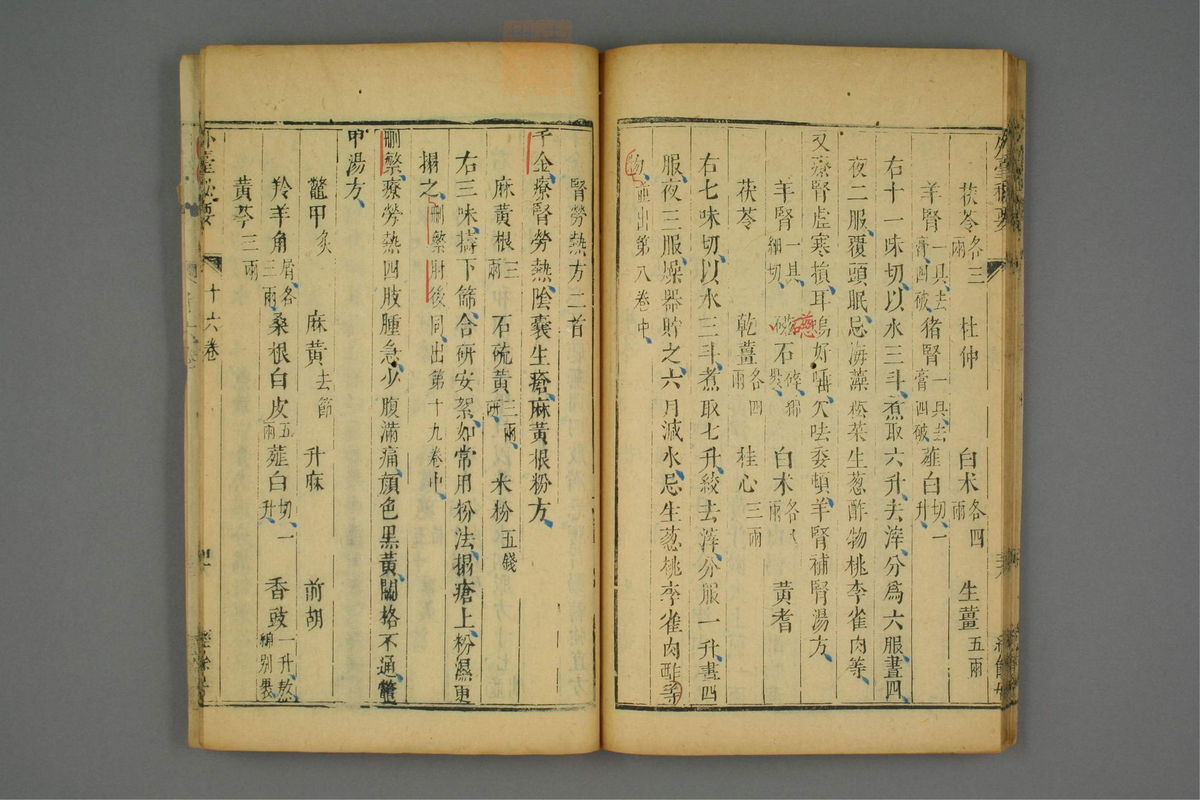 茯苓各三兩 杜仲 白术各四兩 生薑五兩
羊腎一具去膏四破 猪腎一具去膏四破 薤白切一升
右十一味切以水三斗煮取六升去滓分爲六服晝四
夜二服覆頭眠忌海藻菘菜生葱酢物桃李雀肉等
又療腎虛寒損耳鳴好唾欠呿委頓羊腎補腎湯方
羊腎一具細切 磁石碎綿裹 白术各八兩 黄耆
茯苓 乾薑各四兩 桂心三兩
右七味切以水三斗煮取七升絞去滓分服一升晝四
服夜三服燥器貯之六月減水忌生葱桃李雀肉酢等
物並出第八卷中
腎勞熱方二首
千金療腎勞熱陰囊生瘡麻黄根粉方
麻黄根三兩 石硫黄三兩研 米粉五錢
右三味擣下篩合研安絮如常用粉法搨瘡上粉濕更
搨之刪繁肘後同出第十九卷中
刪繁療勞熱四肢腫急少腹滿痛顏色黑黄關格不通鼈
甲湯方
鼈甲炙 麻黄去節 升麻 前胡
羚羊角屑各三兩 桑根白皮五兩 薤白切一升 香豉一升熬綿別裹
黄芩三兩
外臺祕要 十六卷